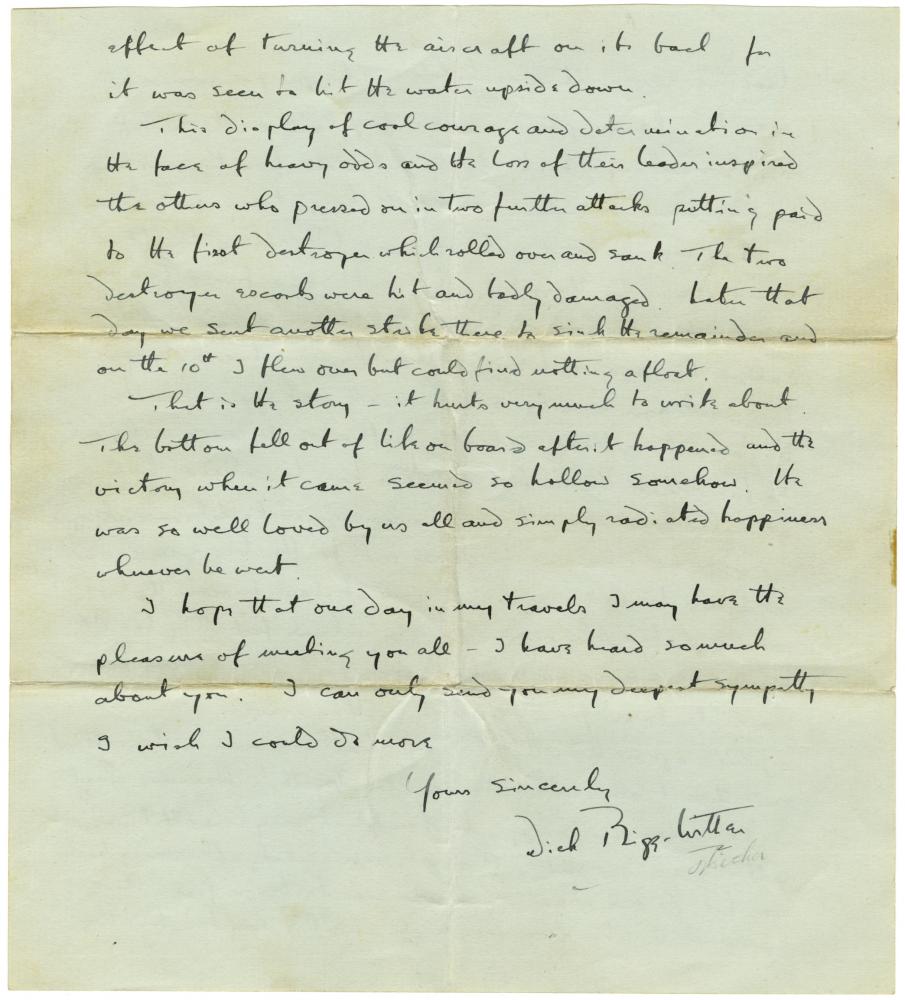 effect of turning the aircraft on its back for
it was seen to hit the water upside down.
This display of cool courage and determination in
the face of heavy odds and the loss of their leader inspired
the others who pressed on in two further attacks putting paid
to the first destroyer which rolled over and sank. The two
destroyer escorts were hit and badly damaged. Later that
day we sent another strike there to sink the remainder and
on the 10th I flew over but could find nothing afloat.
That is the story – it hurts very much to write about.
The bottom fell out of life on board after it happened and the
victory when it came seemed so hollow somehow. He
was so well loved by us all and simply radiated happiness
wherever he went.
I hope that one day in my travels I may have the
pleasure of meeting you all – I have heard so much
about you. I can only send you my deepest sympathy
I wish I could do more
Yours sincerely
Dick